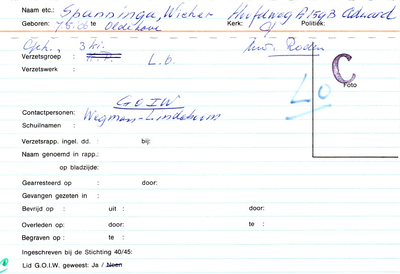 Naam etc.: Spanninga, Wicher Hoofdweg A 159B Aduard
Geboren: 7-5-08 te Oldehove Kerk: Politiek:
Geh., 3 ki. / Gf Inw. Roden
Verzetsgroep : K.P. L.O. C
Verzetswerk : LO
Foto
G O I W
Contactpersonen: Wegman-Lindeboom
Schuilnamen :
Verzetsrapp. ingel. dd. : bij:
Naam genoemd in rapp.:
op bladzijde:
Gearresteerd op : door:
Gevangen gezeten in :
Bevrijd op : uit : door:
Overleden op: door: te :
Begraven op : te :
Ingeschreven bij de Stichting 40/45:
Lid G.O.I.W. geweest: Ja / Neen